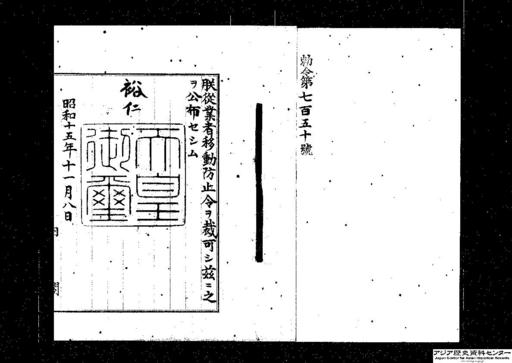 勅令第七百五十號
朕従業者移動防止令ヲ裁可シ茲ニ之
ヲ公布セシム
裕仁
天皇御璽
昭和十五年十一月八日
内閣
アジア歴史資料センター
Japan Center for Asian Historical Records